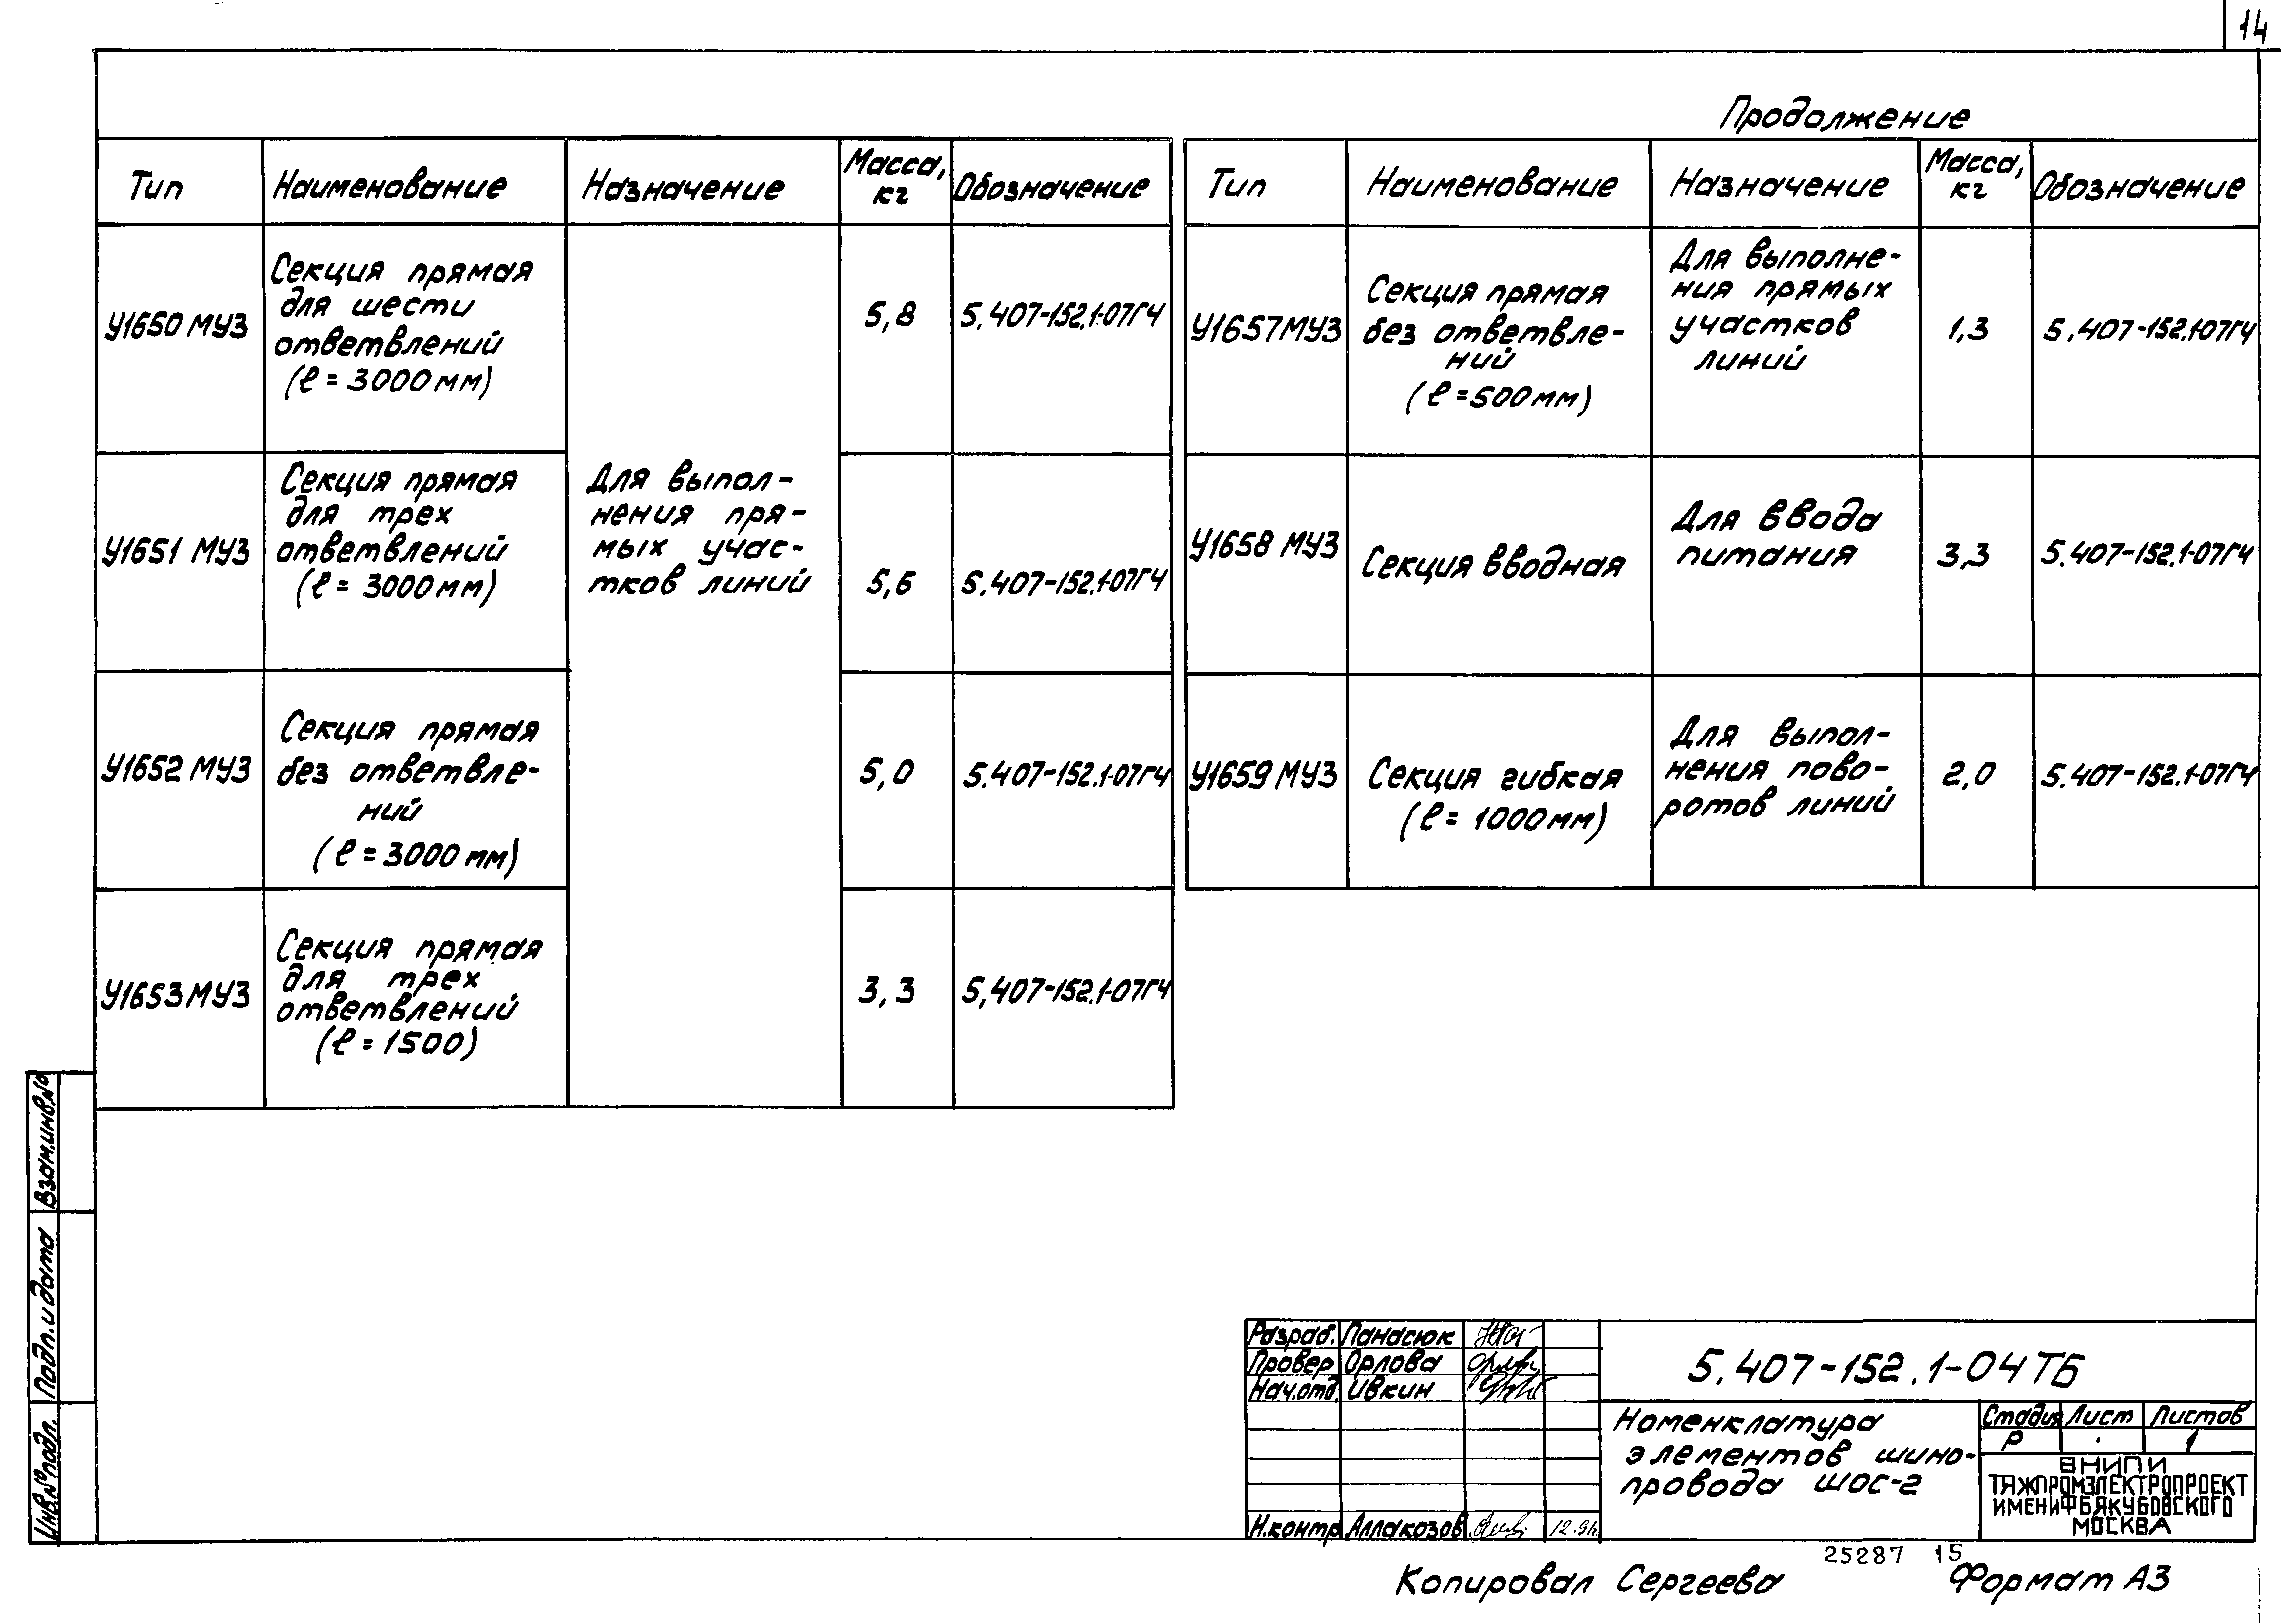 14
Продолжение
Тип
Наименование
Назначение
Масса,
кг
Обозначение
У1650 МУ3
Секция прямая
для шести
ответвлений
(ℓ = 3000 мм)
Для выпол-
нения пря-
мых учас-
тков линий
5,8
5.407-152.1-07ГЧ
У1651 МУ3
Секция прямая
для трех
ответвлений
(ℓ = 3000 мм)
5,6
5.407-152.1-07ГЧ
У1652 МУ3
Секция прямая
без ответвле-
ний
(ℓ = 3000 мм)
5,0
5.407-152.1-07ГЧ
У1653 МУ3
Секция прямая
для трех
ответвлений
(ℓ = 1500)
3,3
5.407-152.1-07ГЧ
Тип
Наименование
Назначение
Масса,
кг
Обозначение
У1657 МУ3
Секция прямая
без ответвле-
ний
(ℓ = 500 мм)
Для выполне-
ния прямых
участков
линий
1,3
5.407-152.1-07ГЧ
У1658 МУ3
Секция вводная
Для ввода
питания
3,3
5.407-152.1-07ГЧ
У1659 МУ3
Секция гибкая
(ℓ = 1000 мм)
Для выпол-
нения пово-
ротов линий
2,0
5.407-152.1-07ГЧ
Взам.инв.№
Подп. и дата
Инв.№ подл.
Разраб. Панасюк
Провер Орлова
Нач.отд. Ивкин
Н.контр Аллакозов 12.91.
5.407-152.1-04ТБ
Номенклатура
элементов шино-
провода ШОС-2
Стадия Лист Листов
Р 1
ВНИПИ
ТЯЖПРОМЭЛЕКТРОПРОЕКТ
ИМЕНИ Ф.Б.ЯКУБОВСКОГО
МОСКВА
25287 15
Копировал Сергеева Формат А3